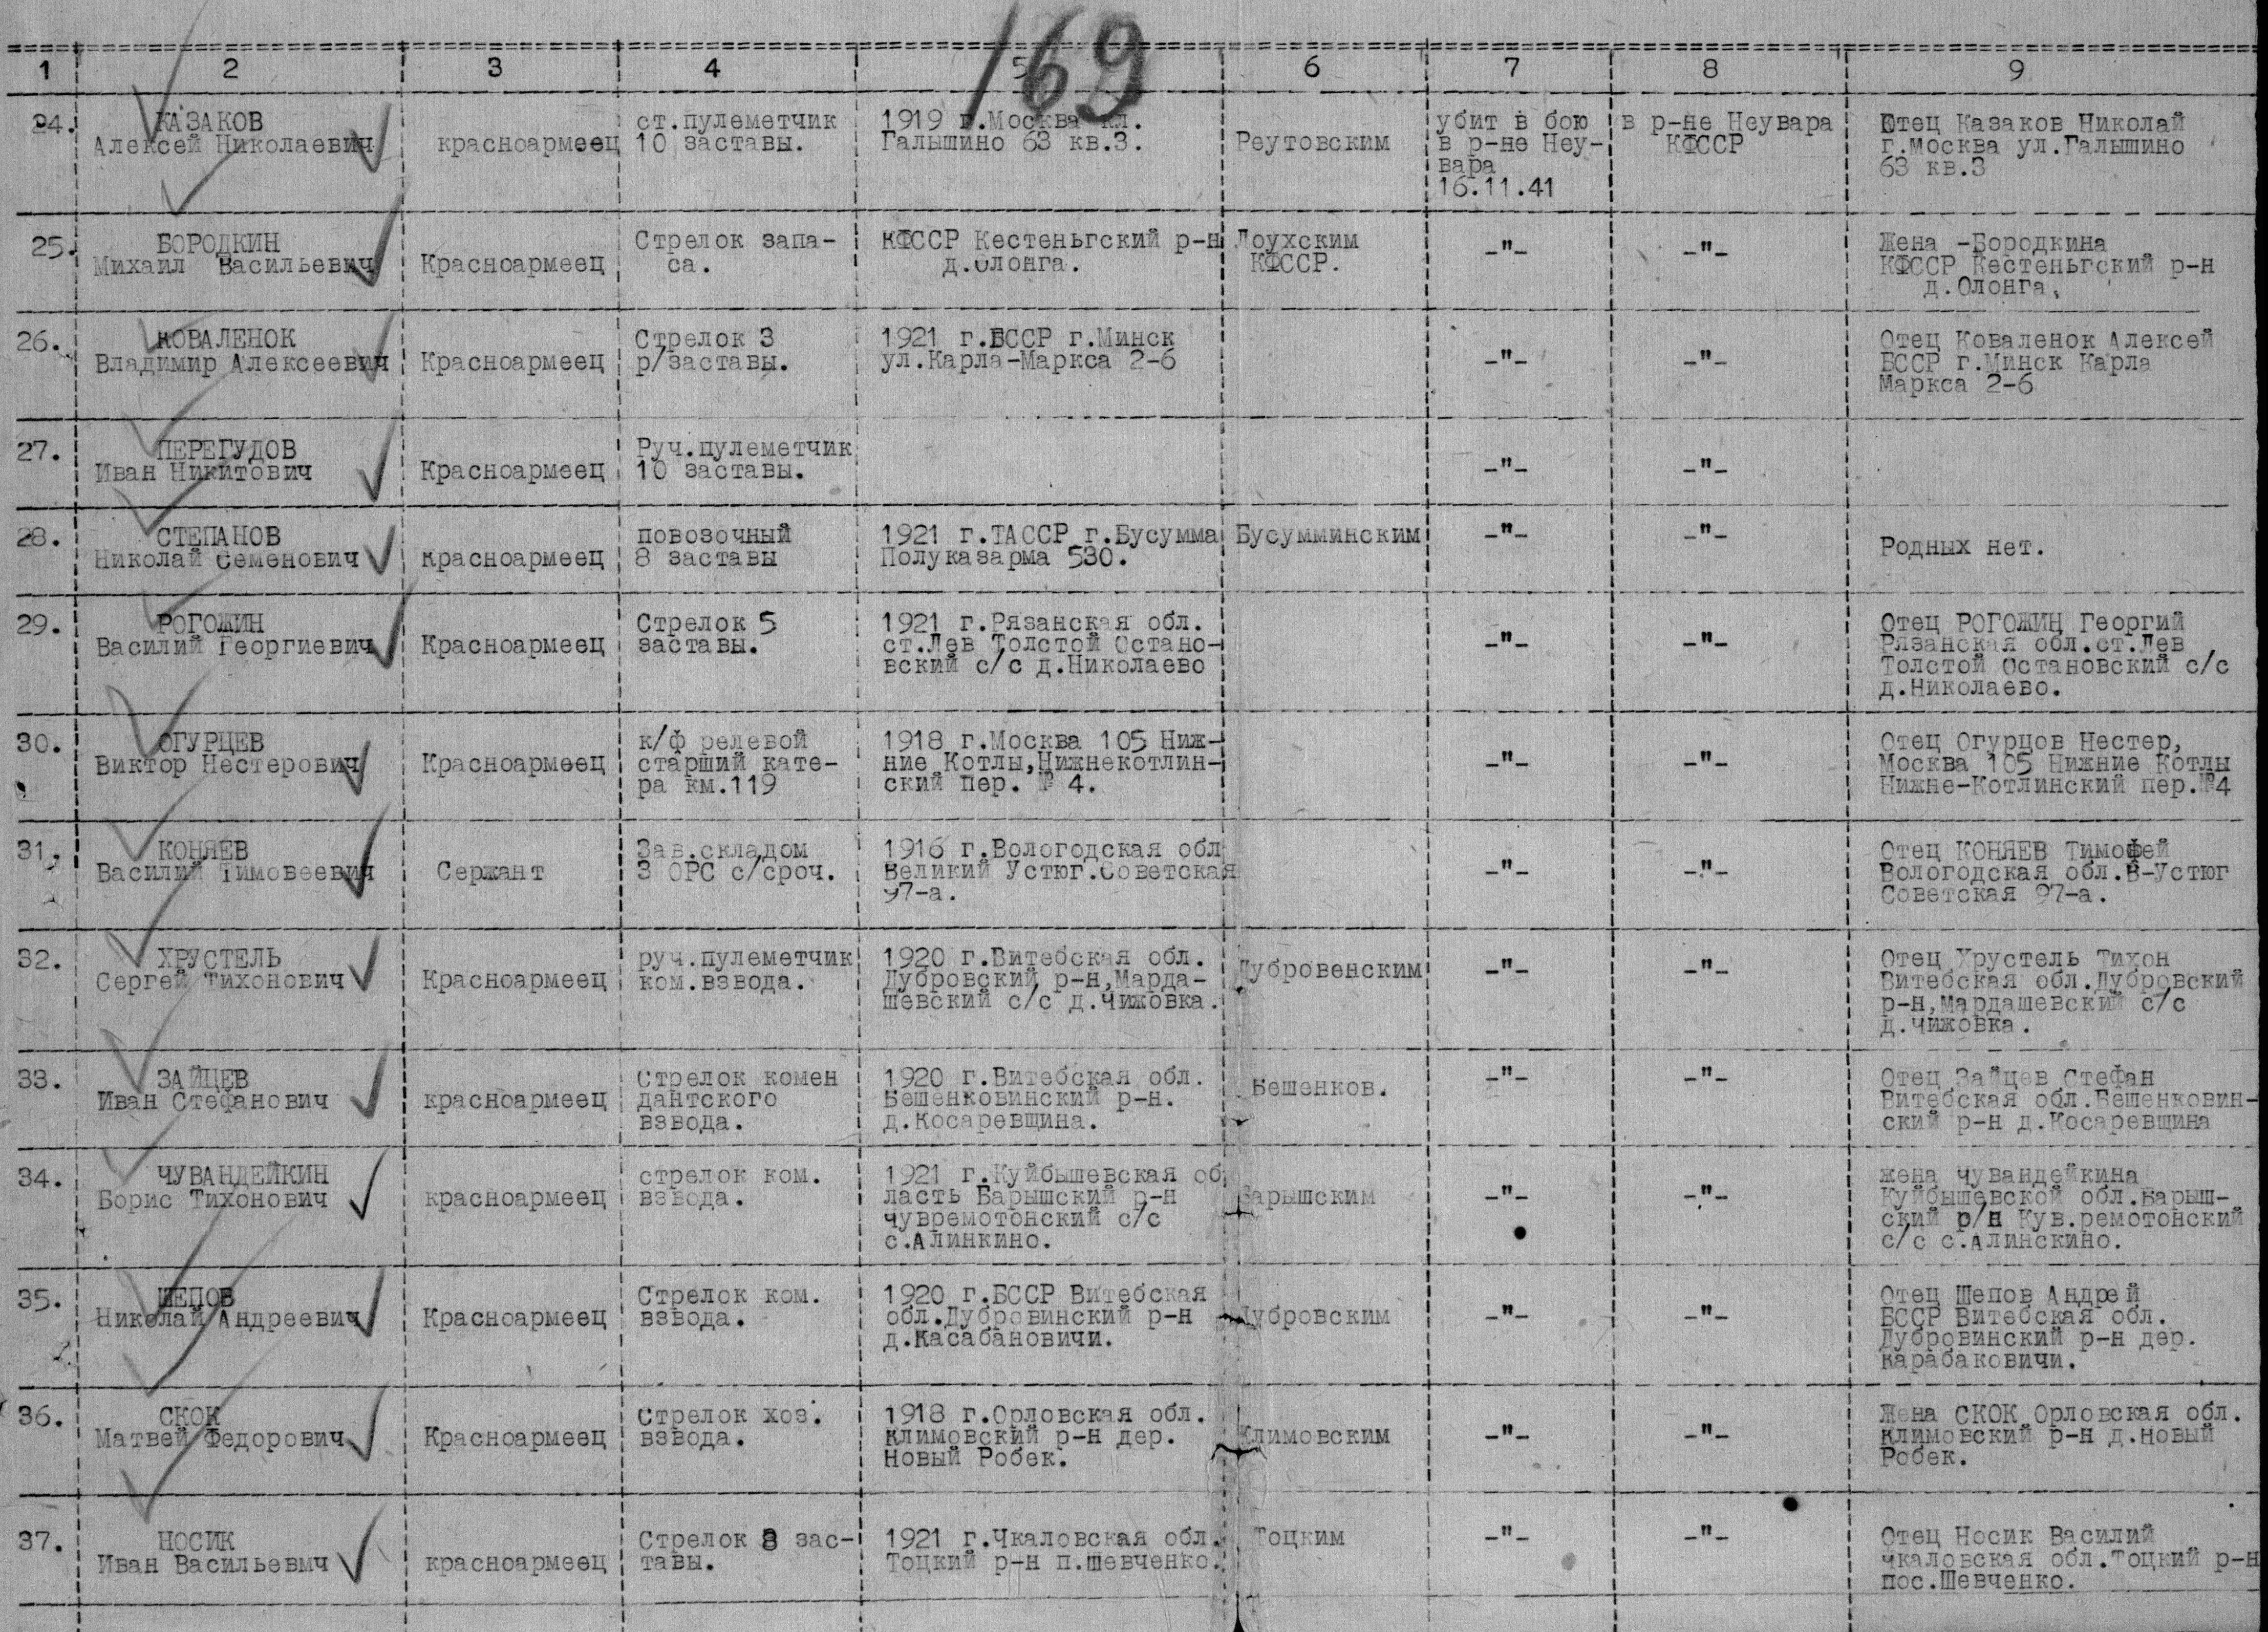 169
1 2 3 4 5 6 7 8 9
24. КАЗАКОВ
Алексей Николаевич
красноармеец
ст.пулеметчик
10 заставы.
1919 г.Москва кл.
Галышино 63 кв.3.
Реутовским
убит в бою
в р-не Неу-
вара
16.11.41
в р-не Неувара
КФССР
Отец Казаков Николай
г.Москва ул.Галышино
63 кв.3
25. БОРОДКИН
Михаил Васильевич
Красноармеец
Стрелок запа-
са.
КФССР Кестеньгский р-н
д.Олонга.
Лоухским
КФССР.
-"-
-"-
Жена -Бородкина
КФССР Кестеньгский р-н
д.Олонга.
26. КОВАЛЕНОК
Владимир Алексеевич
Красноармеец
Стрелок 3
р/заставы.
1921 г.БССР г.Минск
ул.Карла-Маркса 2-6
-"-
-"-
Отец Коваленок Алексей
БССР г.Минск Карла
Маркса 2-6
27. ПЕРЕГУДОВ
Иван Никитович
Красноармеец
Руч.пулеметчик
10 заставы.
-"-
-"-
28. СТЕПАНОВ
Николай Семенович
Красноармеец
повозочный
8 заставы
1921 г.ТАССР г.Бусумма
Полуказарма 530.
Бусумминским
-"-
-"-
Родных нет.
29. РОГОЖИН
Василий Георгиевич
Красноармеец
Стрелок 5
заставы.
1921 г.Рязанская обл.
ст.Лев Толстой Остано-
вский с/с д.Николаево
-"-
-"-
Отец РОГОЖИН Георгий
Рязанская обл.ст.Лев
Толстой Остановский с/с
д.Николаево.
30. ОГУРЦЕВ
Виктор Нестерович
Красноармеец
к/ф релевой
старший кате-
ра км.119
1918 г.Москва 105 Ниж-
ние Котлы,Нижнекотлин-
ский пер. № 4.
-"-
-"-
Отец Огурцов Нестер,
Москва 105 Нижние Котлы
Нижне-Котлинский пер.№4
31. КОНЯЕВ
Василий Тимовеевич
Сержант
Зав.складом
3 ОРС с/сроч.
1916 г.Вологодская обл
Великий Устюг.Советская
97-а.
-"-
-"-
Отец КОНЯЕВ Тимофей
Вологодская обл.В-Устюг
Советская 97-а.
32. ХРУСТЕЛЬ
Сергей Тихонович
Красноармеец
руч.пулеметчик
ком.взвода.
1920 г.Витебская обл.
Дубровский р-н,Марда-
шевский с/с д.Чижовка.
Дубровенским
-"-
-"-
Отец Хрустель Тихон
Витебская обл.Дубровский
р-н,Мардашевский с/с
д.Чижовка.
33. ЗАЙЦЕВ
Иван Стефанович
красноармеец
Стрелок комен
дантского
взвода.
1920 г.Витебская обл.
Бешенковинский р-н.
д.Косаревщина.
Бешенков.
-"-
-"-
Отец Зайцев Стефан
Витебская обл.Бешенковин-
ский р-н д.Косаревщина
34. ЧУВАНДЕЙКИН
Борис Тихонович
красноармеец
стрелок ком.
взвода.
1921 г.Куйбышевская об
ласть Барышский р-н
чувремотонский с/с
с.Алинкино.
Барышским
-"-
-"-
жена чувандейкина
Куйбышевской обл.Барыш-
ский р/н Кув.ремотонский
с/с с.Алинскино.
35. ШЕПОВ
Николай Андреевич
Красноармеец
Стрелок ком.
взвода.
1920 г.БССР Витебская
обл.Дубровинский р-н
д.Касабановичи.
Дубровским
-"-
-"-
Отец Шепов Андрей
БССР Витебская обл.
Дубровинский р-н дер.
Карабаковичи.
36. СКОК
Матвей Федорович
Красноармеец
Стрелок хоз.
взвода.
1918 г.Орловская обл.
Климовский р-н дер.
Новый Робек.
Климовским
-"-
-"-
Жена СКОК Орловская обл.
Климовский р-н д.Новый
Робек.
37. НОСИК
Иван Васильевмч
красноармеец
Стрелок 8 зас-
тавы.
1921 г.Чкаловская обл.
Тоцкий р-н п.Шевченко.
Тоцким
-"-
-"-
Отец Носик Василий
Чкаловская обл.Тоцкий р-н
пос.Шевченко.